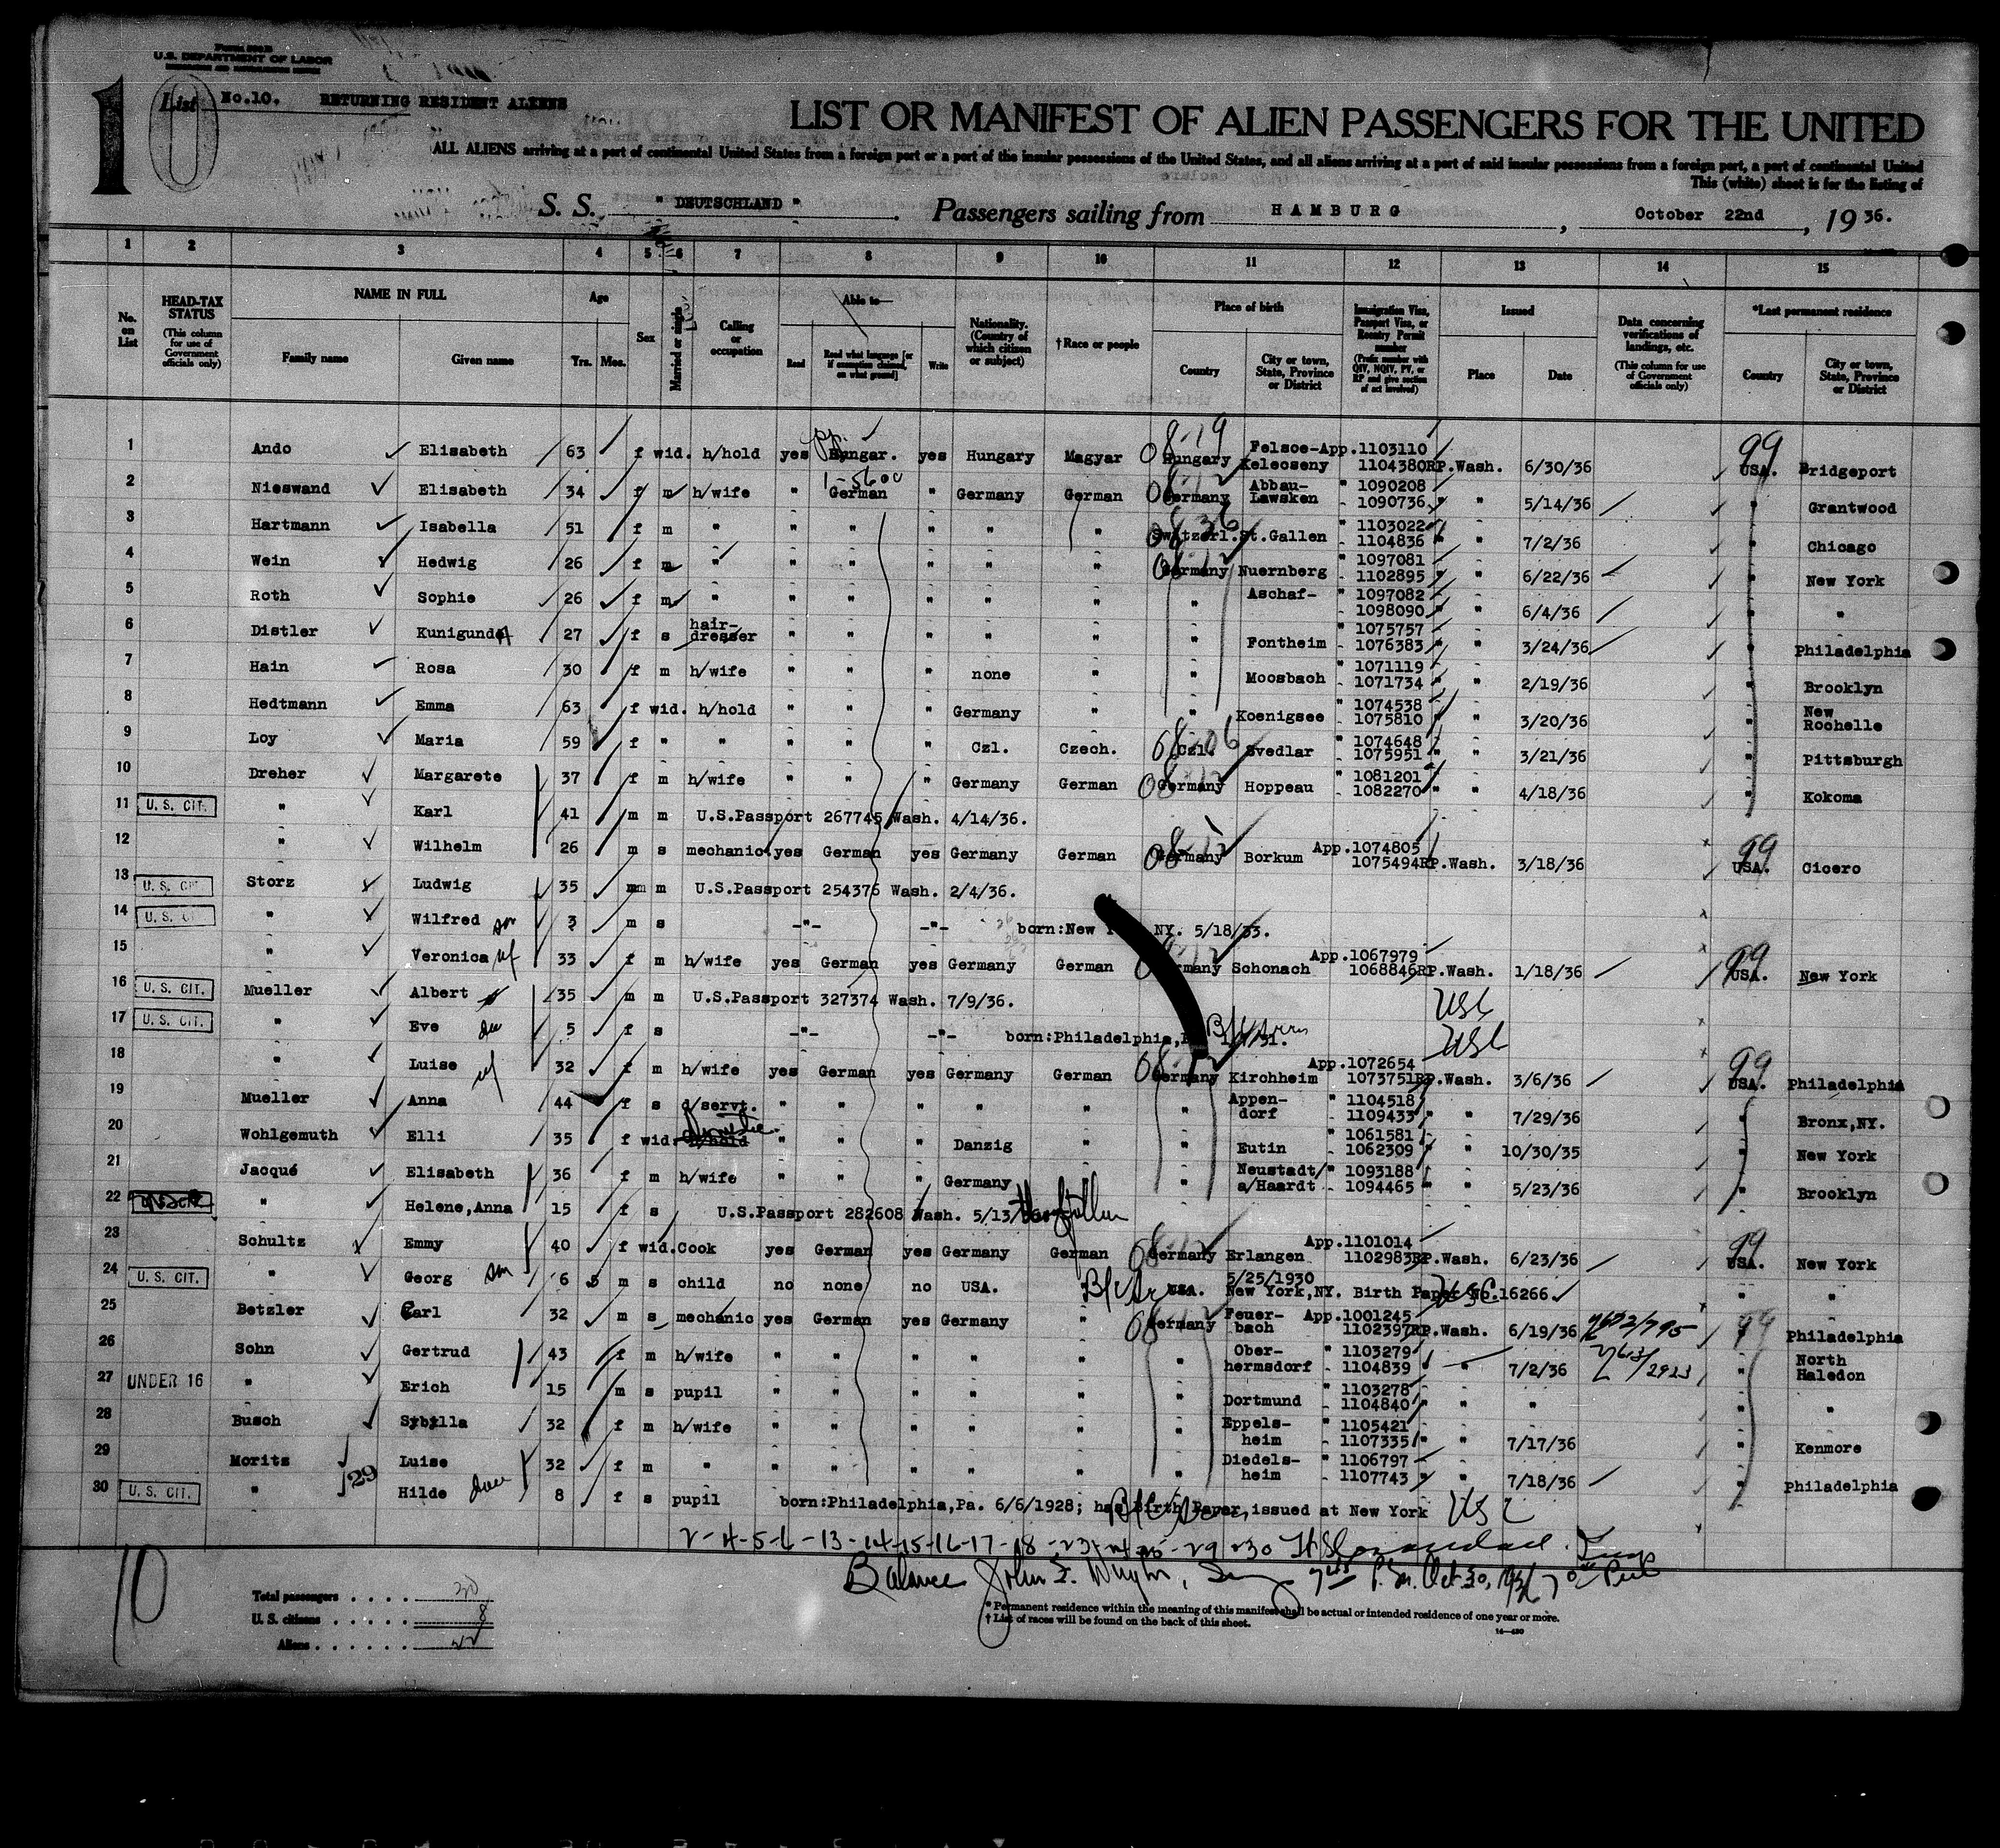 U.S. DEPARTMENT OF LABOR
10
List No.10. RETURNING RESIDENT ALIENS
LIST OR MANIFEST OF ALIEN PASSENGERS FOR THE UNITED
ALL ALIENS arriving at a port of continental United States from a foreign port or a port of the insular possessions of the United States, and all aliens arriving at a port of said insular possessions from a foreign port, a port of continental United
This (white) sheet is for the listing of
S. S. " DEUTSCHLAND " Passengers sailing from HAMBURG, October 22nd, 1936.
1 2 3 4 5 6 7 8 9 10 11 12 13 14 15
No. on List
HEAD-TAX STATUS (This column for use of Government officials only)
NAME IN FULL Family name Given name
Age Yrs. Mos.
Sex
Married or single
Calling or occupation
Able to Read Read what language [or if exemption claimed, on what ground] Write
Nationality. (Country of which citizen or subject)
†Race or people
Place of birth Country City or town, State, Province or District
Immigration Visa, Passport Visa, or Reentry Permit number (Prefix number with QIV, NQIV, PV, or RP and give section of act involved)
Issued Place Date
Data concerning verifications of landings, etc. (This column for use of Government officials only)
*Last permanent residence Country City or town, State, Province or District
1 Ando Elisabeth 63 f wid. h/hold yes Hungar. yes Hungary Magyar Hungary Felsoe-Kelecseny App.1103110 1104380RP.Wash. 6/30/36 99 USA. Bridgeport
2 Nieswand Elisabeth 34 f m h/wife " German " Germany German Germany Abbau-Lawsken " 1090208 1090736 " " 5/14/36 " Grantwood
3 Hartmann Isabella 51 f m " " " " " " Switzerl. St.Gallen " 1103022 1104836 " " 7/2/36 " Chicago
4 Wein Hedwig 26 f m " " " " " " Germany Nuernberg " 1097081 1102895 " " 6/22/36 " New York
5 Roth Sophie 26 f m " " " " " " " Aschaf- " 1097082 1098090 " " 6/4/36 " "
6 Distler Kunigunde 27 f s hair-dresser " " " " " " Fontheim " 1075757 1076383 " " 3/24/36 " Philadelphia
7 Hain Rosa 30 f m h/wife " " " none " " Moosbach " 1071119 1071734 " " 2/19/36 " Brooklyn
8 Hedtmann Emma 63 f wid. h/hold " " " Germany " " Koenigsee " 1074538 1075810 " " 3/20/36 " New Rochelle
9 Loy Maria 59 f " " " " " Czl. Czech. Czl. Svedlar " 1074648 1075951 " " 3/21/36 " Pittsburgh
10 Dreher Margarete 37 f m h/wife " " " Germany German Germany Hoppeau " 1081201 1082270 " " 4/18/36 " Kokoma
11 U. S. CIT. " Karl 41 m m U.S.Passport 267745 Wash. 4/14/36.
12 " Wilhelm 26 m s mechanic yes German yes Germany German Germany Borkum App.1074805 1075494RP.Wash. 3/18/36 99 USA. Cicero
13 U. S. CIT Storz Ludwig 35 m m U.S.Passport 254376 Wash. 2/4/36.
14 U. S. CI " Wilfred son 3 m s -"- -"- born:New Y NY. 5/18/33.
15 " Veronica wf 33 f m h/wife yes German yes Germany German Germany Schonach App.1067979 1068846RP.Wash. 1/18/36 99 USA. New York
16 U. S. CIT. Mueller Albert 35 m m U.S.Passport 327374 Wash. 7/9/36. USC
17 U. S. CIT. " Eve dau 5 f s -"- -"- born:Philadelphia, USC
18 " Luise wf 32 f m h/wife yes German yes Germany German Germany Kirchheim App.1072654 1073751RP.Wash. 3/6/36 99 USA. Philadelphia
19 Mueller Anna 44 f s d/servt. " " " " " " Appen-dorf " 1104518 1109433 " " 7/29/36 " Bronx,NY.
20 Wohlgemuth Elli 35 f wid. h/hold Domestic " " " Danzig " " Eutin " 1061581 1062309 " " 10/30/35 " New York
21 Jacqué Elisabeth 36 f m h/wife " " " Germany " " Neustadt/a/Haardt " 1093188 1094465 " " 5/23/36 " Brooklyn
22 " Helene,Anna 15 f s U.S.Passport 282608 Wash. 5/13/36
23 Schultz Emmy 40 f wid. Cook yes German yes Germany German Germany Erlangen App.1101014 1102983RP.Wash. 6/23/36 99 USA. New York
24 U. S. CIT. " Georg son 6 m s child no none no USA. USA. 5/25/1930 New York,NY. Birth Paper No.16266. USC " "
25 Betzler Carl 32 m s mechanic yes German yes Germany " Germany Feuer-bach App.1001245 1102397RP.Wash. 6/19/36 99 Philadelphia
26 Sohn Gertrud 43 f m h/wife " " " " " " Ober-hermsdorf " 1103279 1104839 " " 7/2/36 " North Haledon
27 UNDER 16 " Erich 15 m s pupil " " " " " " Dortmund " 1103278 1104840 " " " " "
28 Busch Sybilla 32 f m h/wife " " " " " " Eppels-heim " 1105421 1107335 " " 7/17/36 " Kenmore
29 Moritz Luise 32 f m " " " " " " " Diedels-heim " 1106797 1107743 " " 7/18/36 " Philadelphia
30 U. S. CIT. " 29 Hilde dau 8 f s pupil born:Philadelphia,Pa. 6/6/1928; has Birth Paper issued at New York USC
Balance John
10
Total passengers . . . . 30
U. S. citizens . . . . . 8
Aliens . . . . . . 22
* Permanent residence within the meaning of this manifest shall be actual or intended residence of one year or more.
† List of races will be found on the back of this sheet.